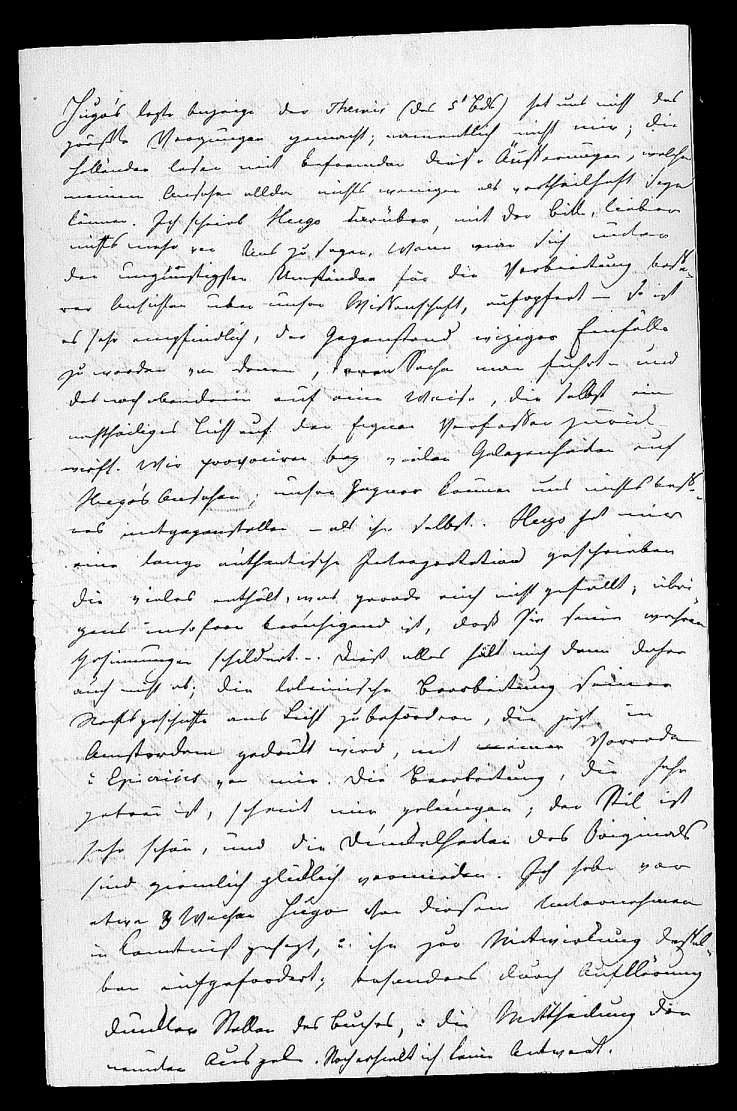 Hugo's letzte Anzeige der Themis (des 5' Bds) hat uns nicht das
größte Vergnügen gemacht, namentlich nicht mir; die
Holländer lasen mit Befremden diese Äußerungen, welche
meinem Ansehen allda nichts weniger als vortheilhaft seyn
können. Ich schrieb Hugo darüber, mit der Bitte, lieber
nichts mehr von Uns zu sagen. Wenn man sich unter
den ungünstigsten Umständen für die Verbreitung besse-
rer Ansichten über unsre Wissenschaft, aufopfert – so ist
es sehr empfindlich, der Gegenstand witziger Einfälle
zu werden von denen, deren Sache man führt – und
das noch obendrein auf eine Weise, die selbst ein
nachtheiliges Licht auf den Verfasser zurück
wirft. Wir provociren bey vielen Gelegenheiten auf
Hugo's Ansehen; unsre Gegner können uns nichts besse-
res entgegenstellen – als ihn selbst. Hugo hat mir
eine lange authentische Interpretation geschrieben
die vieles enthält, was gerade auch nicht gefällt, übri
gens insofern beruhigend ist, daß sie seine wahren
Gesinnungen schildert. – Dieß alles hält mich denn daher
auch nicht ab, die lateinische Bearbeitung seiner
Rechtsgeschichte ans Licht zu befördern, die jetzt in
Amsterdam gedruckt wird, mit einer Vorrede
u von mir. Die Bearbeitung, die sehr
getreu ist, scheint mir gelungen; der Stil ist
sehr schön, und die Dunkelheiten des Originals
sind ziemlich glücklich vermieden. Ich habe vor
etwa 3 Wochen Hugo von diesem Unternehmen
in Kenntniß gesetzt, u. ihn zur Mitwirkung dessel-
ben aufgefordert, besonders durch Aufklärung
dunkler Stellen des Buches, u die Mittheilung der
neusten Ausgabe. Noch erhielt ich keine Antwort.